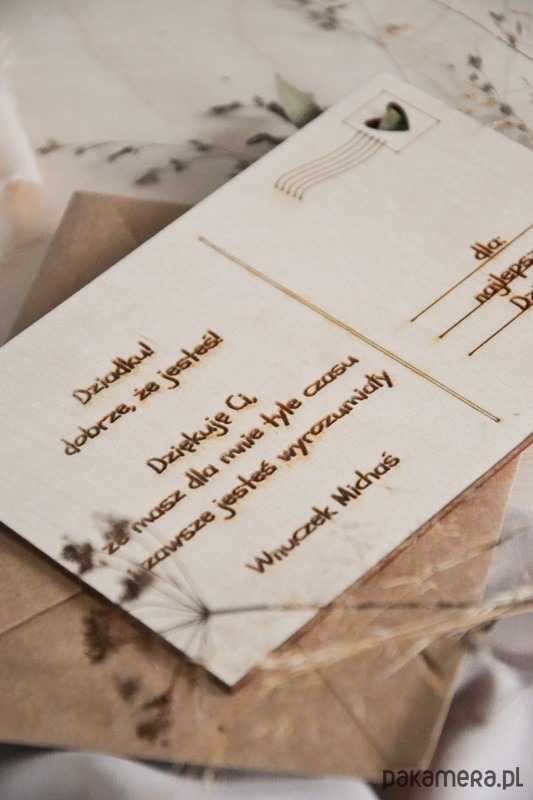 Dziadku!
dobrze, że jesteś!
Dziękuję Ci,
że masz dla mnie tyle czasu
i zawsze jesteś wyrozumiały
Wnuczek Michaś
dla:
pakamera.pl